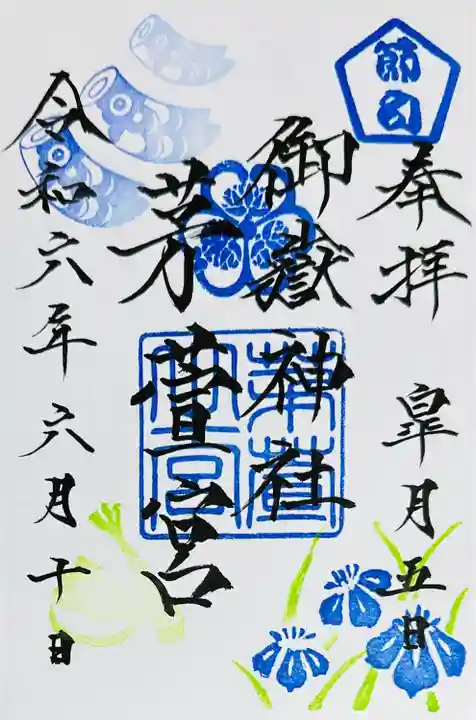 節句
奉拝 皐月五日
御嶽神社
茅萱宮
茅萱
宮
令和六年六月十日